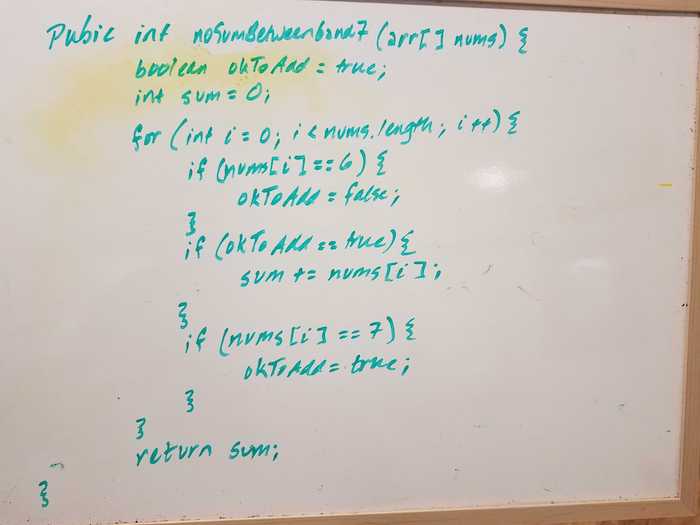 Pubic int noSumBetween6and7 (arr[] nums) {
boolean okToAdd = true;
int sum = 0;
for (int i = 0; i < nums.length; i++) {
if (nums[i] == 6) {
okToAdd = false;
}
if (okToAdd == true) {
sum += nums[i];
}
if (nums[i] == 7) {
okToAdd = true;
}
}
return sum;
}